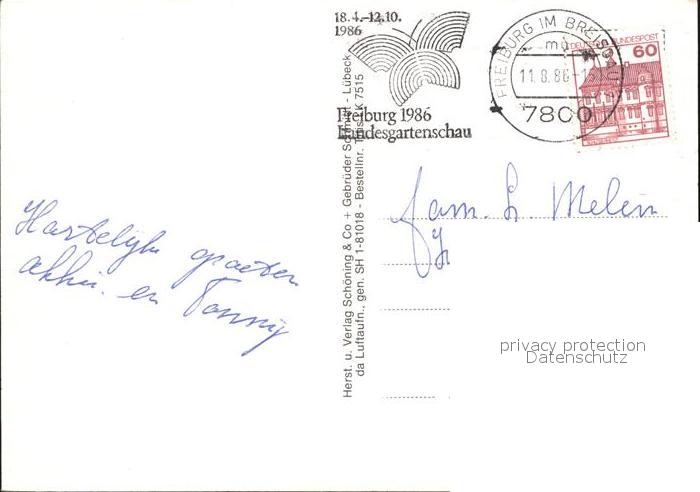 18.4.-12.10.
1986
Freiburg 1986
Landesgartenschau
FREIBURG IM BREISGAU
mü
11.8.86-15
7800
DEUTSCHE BUNDESPOST
60
Hartelijke groeten
en Tonny
Fam.
Herst. u. Verlag Schöning & Co + Gebrüder Schmidt - Lübeck
da Luftaufn., gen. SH 1-81018 - Bestellnr. 7515
privacy protection
Datenschutz